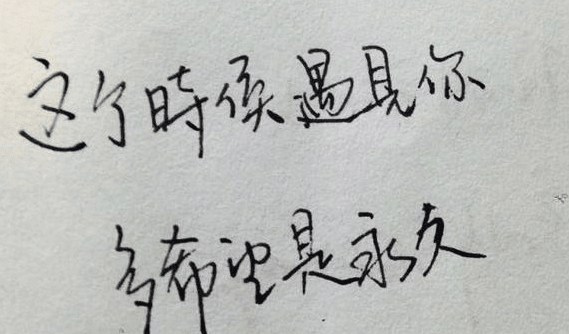 这个時候遇見你
多希望是永久